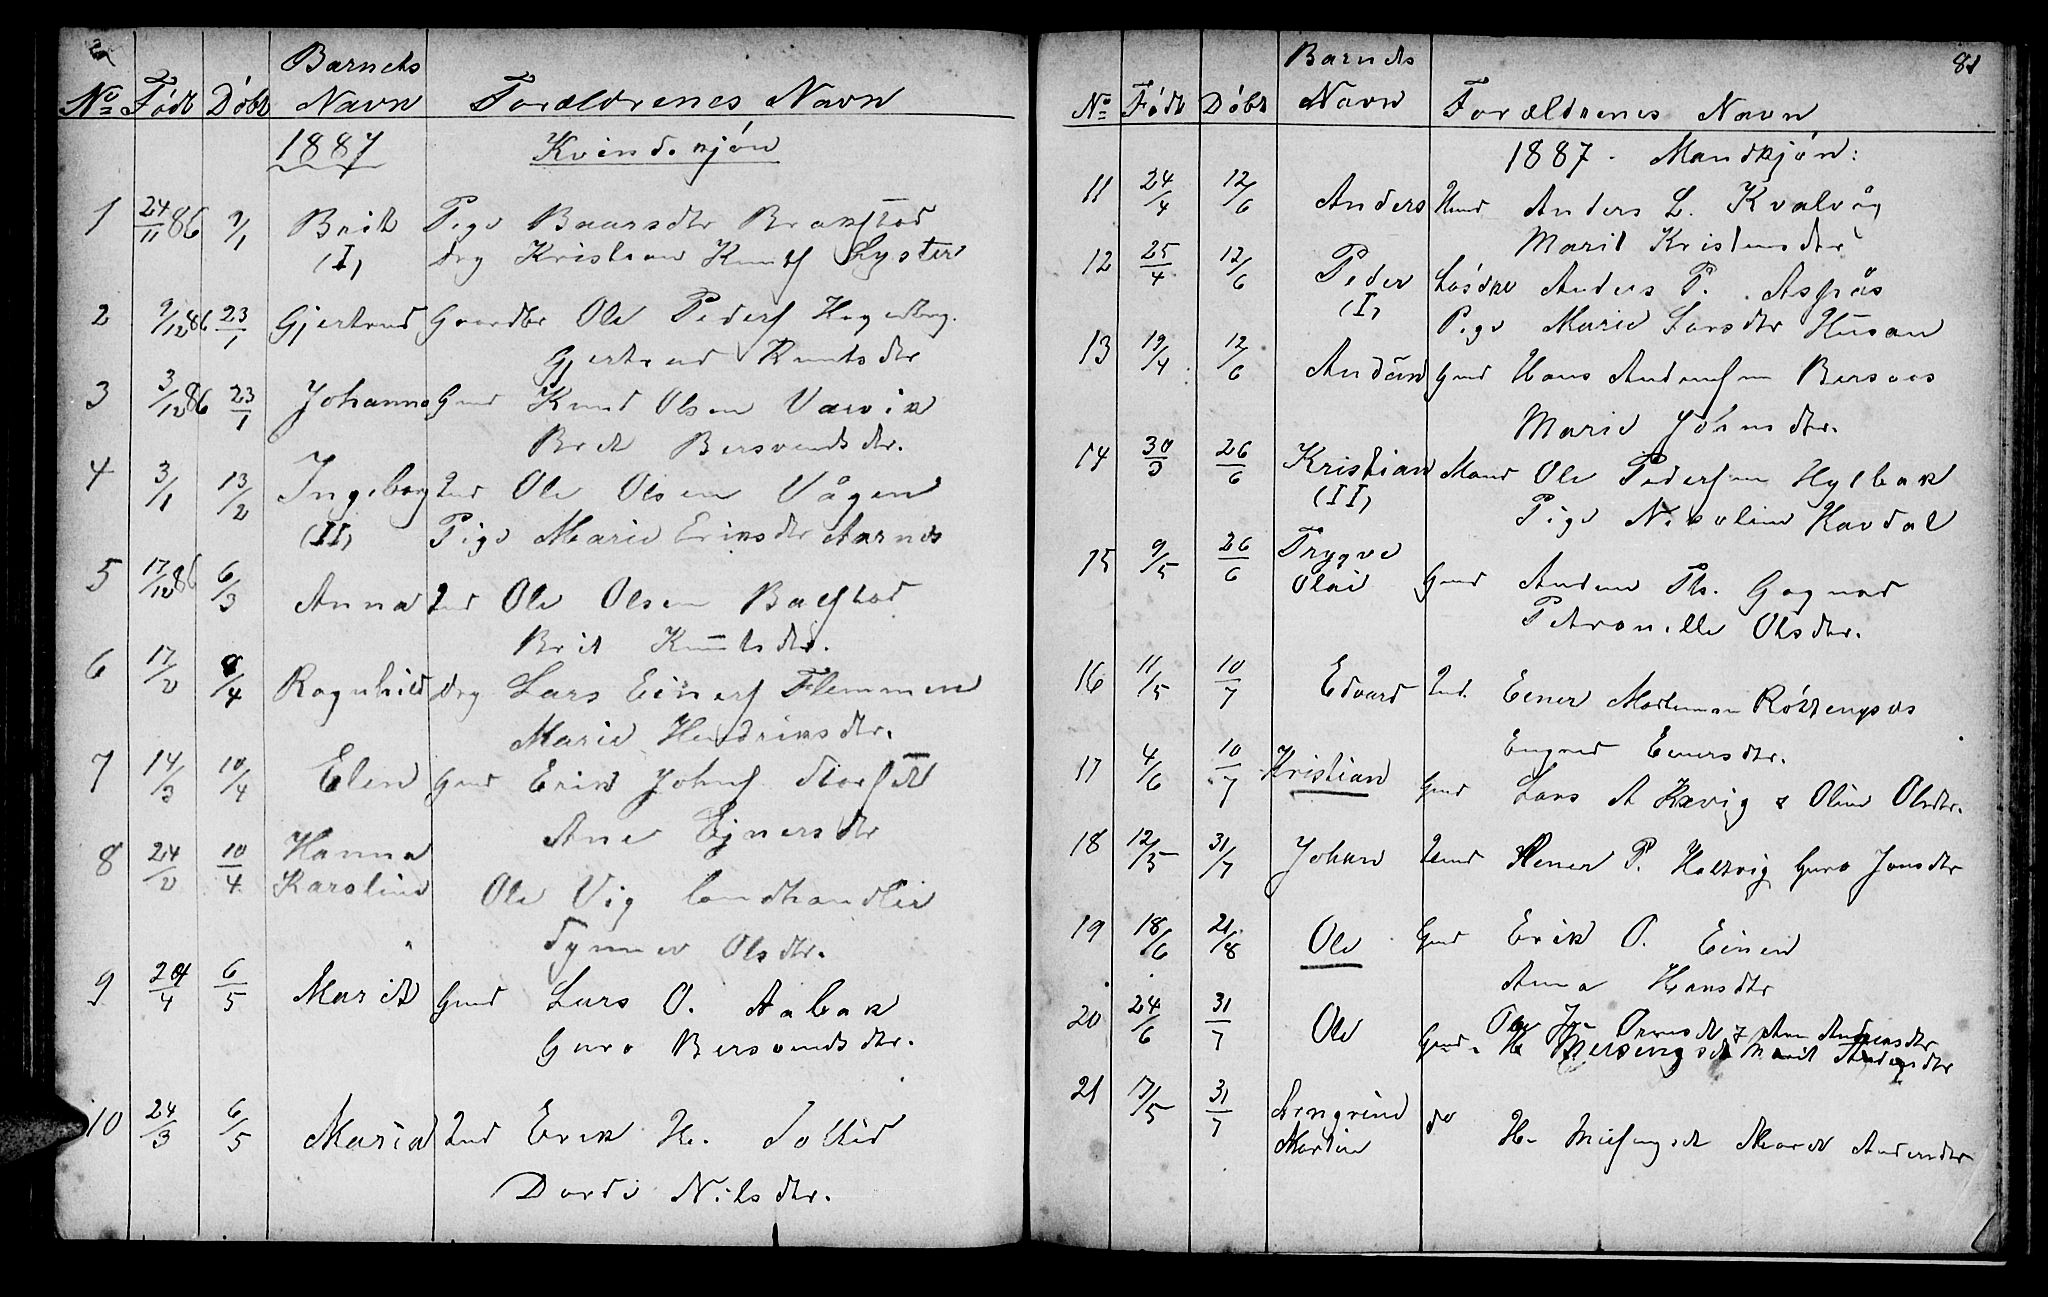 Barnets
No Født Døbt Navn Forældrenes Navn
1887 Kvindekjøn
1 24/11 86 9/1 Brit Pige Baarsdtr
(I) Drg Kristian Knuts Lyster
2 9/12 86 23/1 Gjertrud Gaardbr Ole Peders
Gjertrud Knutsdtr
3 3/12 86 23/1 Johanna Gmd Knud Olsen Varvik
Brit Bersvendsdtr.
4 3/1 13/2 Ingeborg Imd Ole Olsen Vågen
(II) Pige Marie Eriksdtr Aarnes
5 17/12 86 6/3 Anna Imd Ole Olsen
Brit Knutsdtr.
6 17/2 8/4 Ragnhild Drg Lars Einers Flemmen
Marie Hendriksdtr.
7 14/3 10/4 Elen Gmd Erik Johns
Ane Ejnersdtr
8 24/2 10/4 Hanna
Karoline Ole Vig Landhandler
Synnev Olsdtr.
9 24/4 6/5 Marit Gmd Lars O. Aabak
Guro Bersvendsdtr.
10 24/3 6/5 Maria Imd Erik H. Sollid
Dordi Nilsdtr.
81
Barnets
No Født Døbt Navn Forældrenes Navn
1887. Mandkjøn:
11 24/4 12/6 Anders Hmd Anders L. Kvalvåg
Marit Kristensdtr
12 25/4 12/6 Peder Løsdrv Anders P. Aspås
(I) Pige Marie Larsdtr Husan
13 19/4 12/6 Gmd Hans Andersen Bersaas
Marie Johnsdtr.
14 30/3 26/6 Kristian Mand Ole Pedersen Hylbak
(II) Pige Nikoline Havdal
15 9/5 26/6 Trygve
Olai Gmd Anders Ths. Gagnad
Petronille Olsdtr.
16 11/5 10/7 Edvard Imd. Einer
Engred Einersdtr.
17 4/6 10/7 Kristian Gmd Lars A & Oline Olsdtr.
18 12/5 31/7 Johan P. Holtvig Guro Jonsdtr
19 18/6 21/8 Ole Gmd Erik O. Einen
Anna Hansdtr
20 24/6 31/7 Ole Gmd Ane Andersdtr
H Marit Andersdtr
21 17/5 31/7 Arngrim
Martin do H. Marit Andersdtr